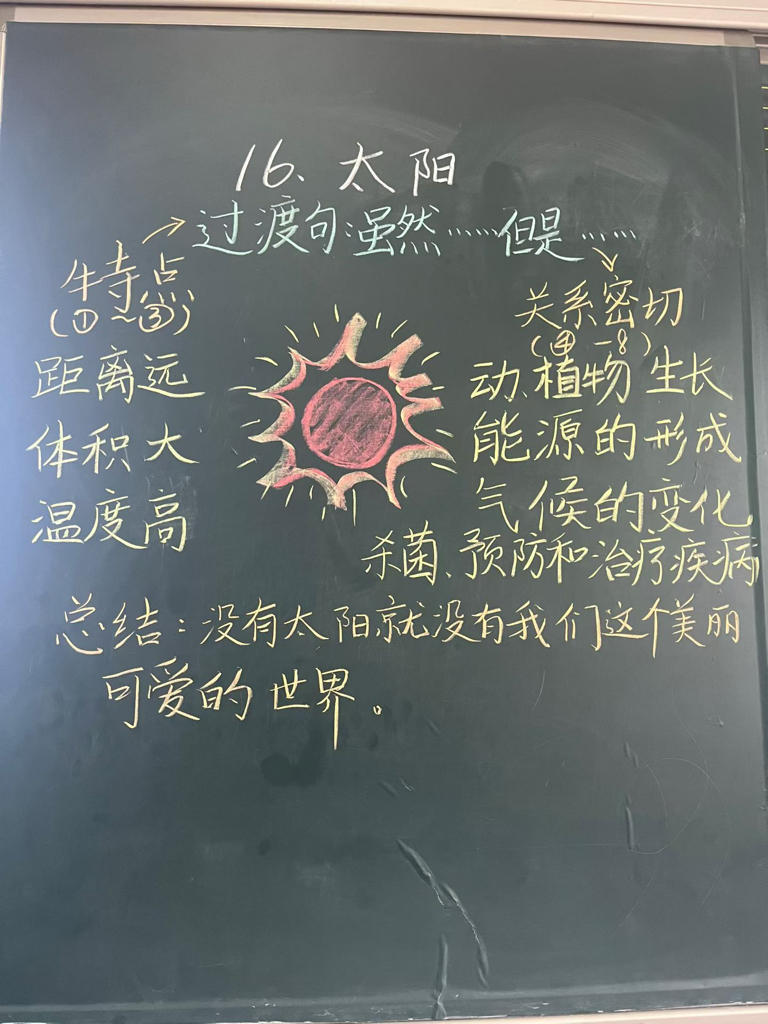 16、太阳
过渡句:虽然……但是……
特点
(①~③)
距离远
体积大
温度高
关系密切
(④-8)
动、植物生长
能源的形成
气候的变化
杀菌、预防和治疗疾病
总结:没有太阳,就没有我们这个美丽
可爱的世界。